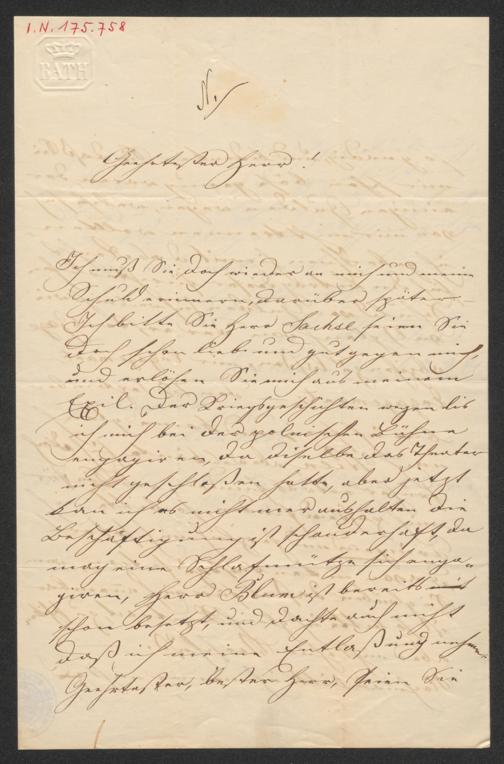 I. N. 175.758
BATH
N./
Geehrtester Herr!
Ich muß Sie doch wieder an mich und meine
Schuld erinnern, darüber später
Ich bitte Sie Herr Sachse seien Sie
doch schon lieb und gut gegen mich,
und erlösen Sie mich aus meinem
Exil. Der Kriegsgeschichten wegen lis
ich mich bei der polnischen Bühne
engagiren, da diselbe das Theater
nicht geschloßen hatte, aber jetzt
kan ich es nicht mer aushalten die
Beschäftigung ist schauderhaft, da
mag eine Schlafmütze sich enga-
giren, Herr Blum ist bereits
schon besetzt, und dachte auch nicht
daß ich meine Entlaßung nehme
Geehrtester, bester Herr, seien Sie